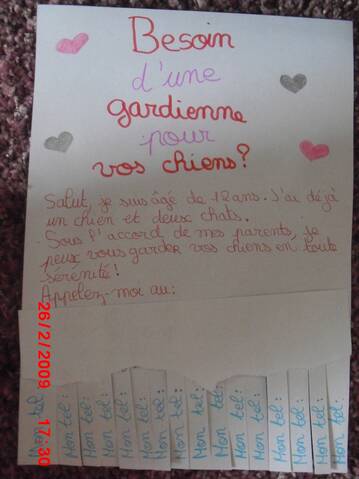 Besoin
d'une
gardienne
pour
vos chiens?
Salut, je suis âgé de 12 ans. J'ai déjà
un chien et deux chats.
Sous l'accord de mes parents, je
peux vous garder vos chiens en toute
sérénité!
Appelez-moi au:
Mon tel:
Mon tel:
Mon tel:
Mon tel:
Mon tel:
Mon tel:
Mon tel:
Mon tel:
Mon tel:
Mon tel:
Mon tel:
Mon tel:
26/2/2009 17:30